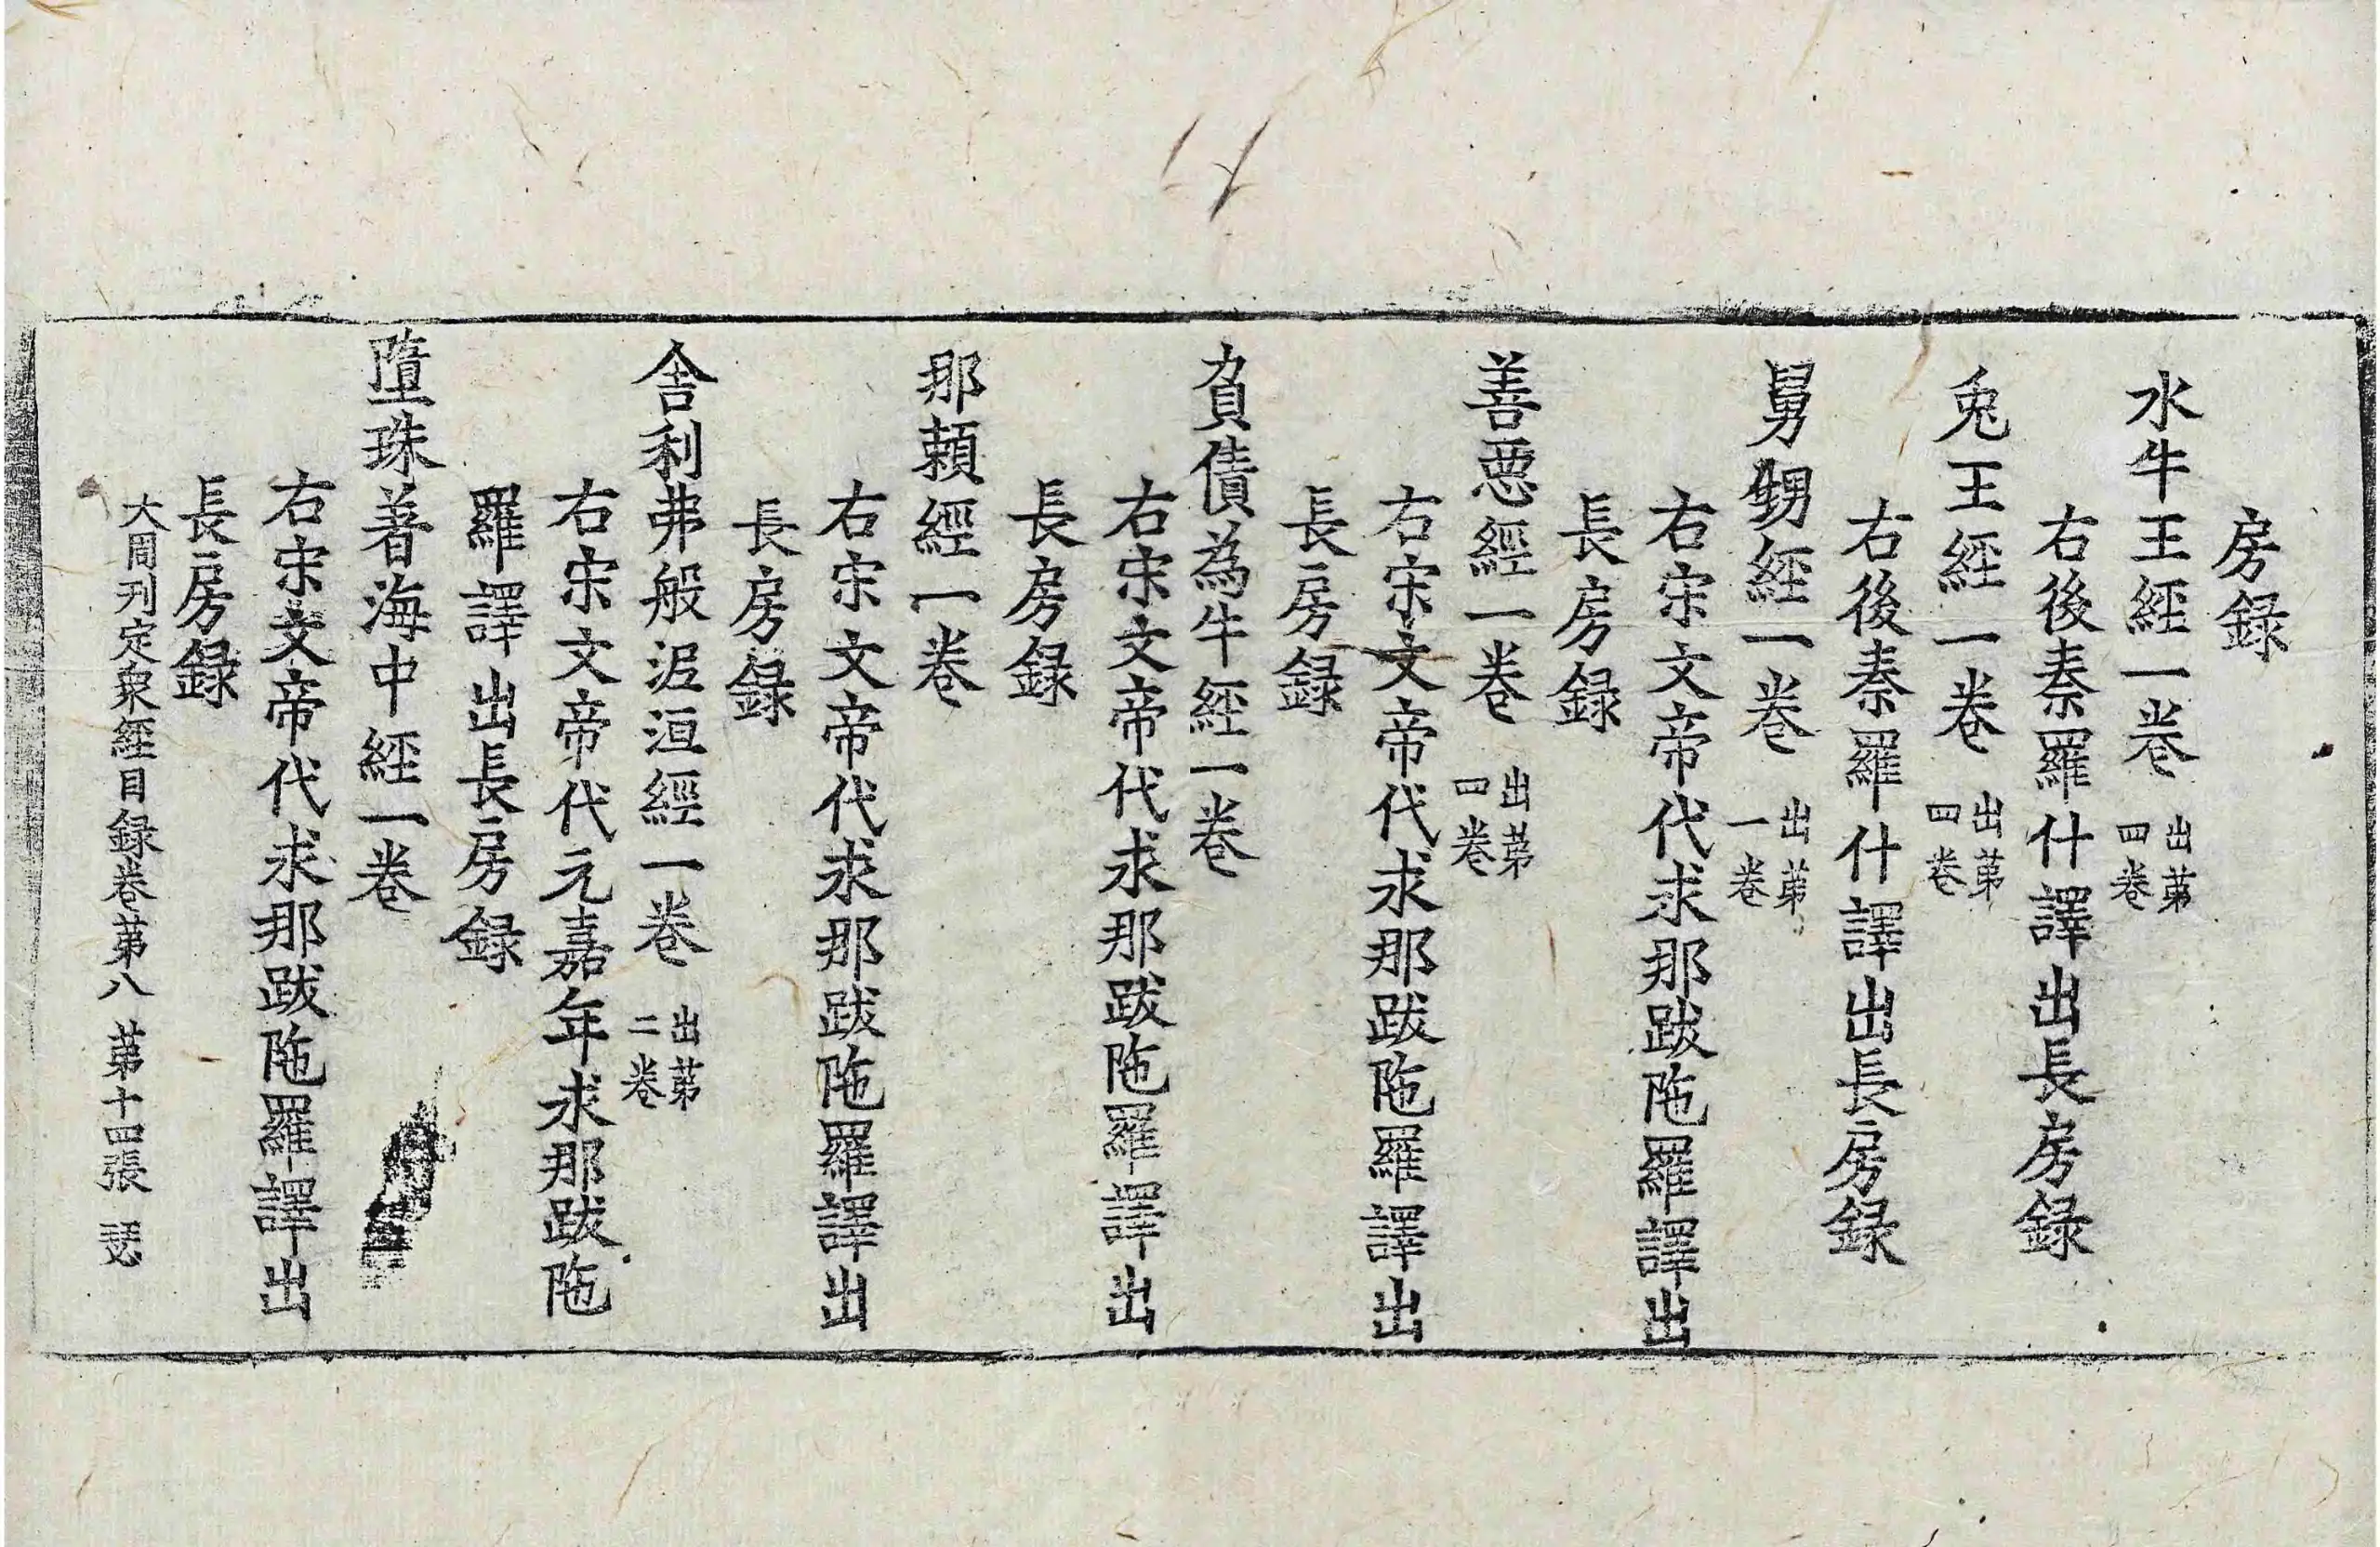 房録
水牛王經一卷 出第四卷
右後秦羅什譯出長房録
兎王經一卷 出第四卷
右後秦羅什譯出長房録
舅甥經一卷 出第一卷
右宋文帝代求那跋陁羅譯出
長房録
善惡經一卷 出第四卷
右宋文帝代求那跋陁羅譯出
長房録
負債為牛經一卷
右宋文帝代求那跋陁羅譯出
長房録
那頼經一卷
右宋文帝代求那跋陁羅譯出
長房録
舎利弗般泥洹經一卷 出第二卷
右宋文帝代元嘉年求那跋陁
羅譯出長房録
墮珠著海中經一卷
右宋文帝代求那跋陁羅譯出
長房録
大周刊定衆經目録卷第八 第十四張 瑟